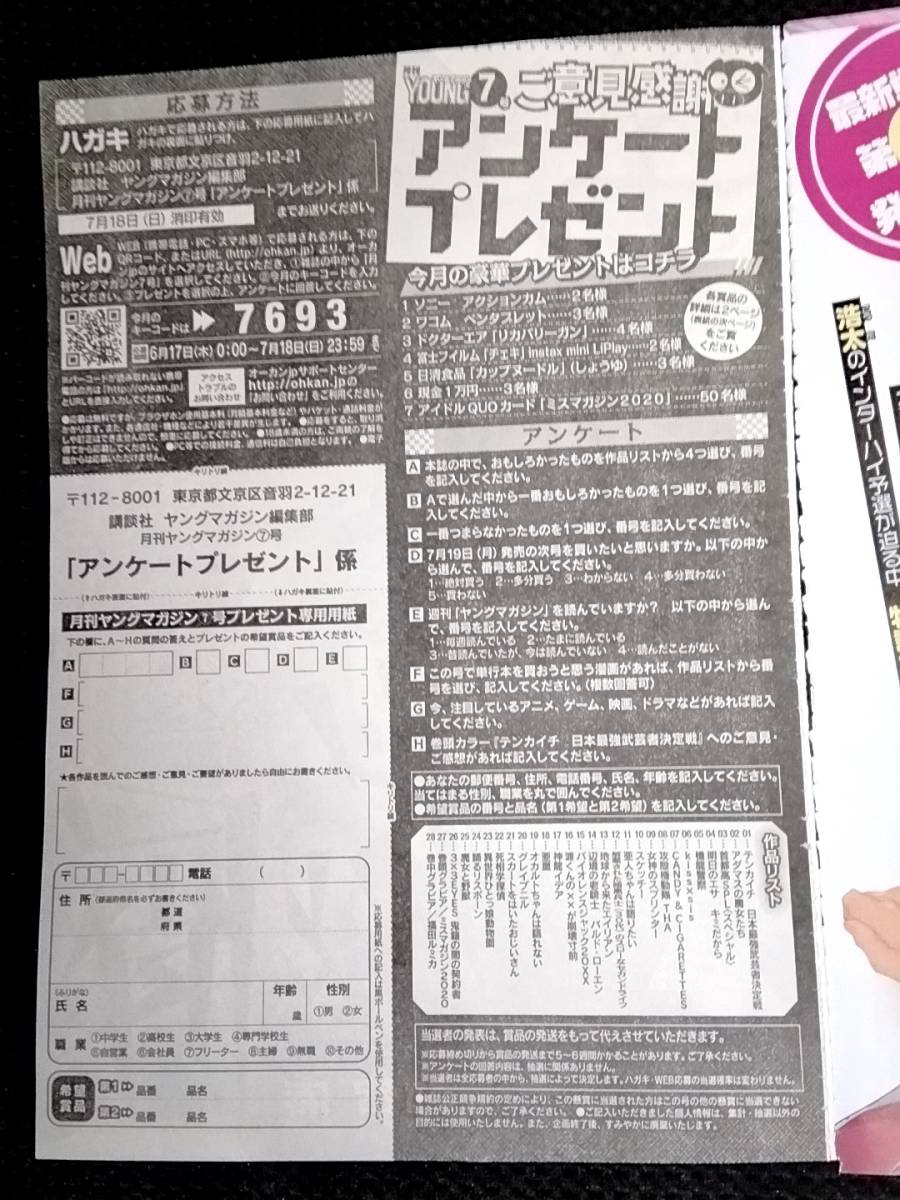 月刊
YOUNG 7号 ご意見感謝
アンケート
プレゼント
今月の豪華プレゼントはコチラ
1 ソニー アクションカム……2名様
2 ワコム ペンタブレット……3名様
3 ドクターエア「リカバリーガン」……4名様
4 富士フイルム「チェキ」instax mini LiPlay……2名様
5 日清食品「カップヌードル」(しょうゆ)……3名様
6 現金1万円……3名様
7 アイドルQUOカード「ミスマガジン2020」……50名様
各賞品の
詳細は2ページ
(表紙の次ページ)
をご覧
ください
アンケート
A 本誌の中で、おもしろかったものを作品リストから4つ選び、番号
を記入してください。
B Aで選んだ中から一番おもしろかったものを1つ選び、番号を記
入してください。
C 一番つまらなかったものを1つ選び、番号を記入してください。
D 7月19日(月)発売の次号を買いたいと思いますか。以下の中か
ら選んで、番号を記入してください。
1…絶対買う 2…多分買う 3…わからない 4…多分買わない
5…買わない
E 週刊「ヤングマガジン」を読んでいますか? 以下の中から選ん
で、番号を記入してください。
1…毎週読んでいる 2…たまに読んでいる
3…昔読んでいたが、今は読んでいない 4…読んだことがない
F この号で単行本を買おうと思う漫画があれば、作品リストから番
号を選び、記入してください。(複数回答可)
G 今、注目しているアニメ、ゲーム、映画、ドラマなどがあれば記入
してください。
H 巻頭カラー『テンカイチ 日本最強武芸者決定戦』へのご意見・
ご感想があれば記入してください。
●あなたの郵便番号、住所、電話番号、氏名、年齢を記入してください。
当てはまる性別、職業を丸で囲んでください。
●希望賞品の番号と品名(第1希望と第2希望)を記入してください。
作品リスト
01 テンカイチ 日本最強武芸者決定戦
02 アグマスの魔女たち
03 首都高SPL(スペシャル)
04 明日のエサ キミだから
05 機龍警察
06 kiss×sis
07 CANDY & CIGARETTES
08 攻殻機動隊 THA
09 女神のスプリンター
10 スケッチー
11 亜人ちゃんは語りたい
13 地球から来たエイリアン
14 辺境の老騎士 バルド・ローエン
15 バイオレンスジャック20XX
16 源くんの××が崩壊寸前
17 神龍イデア
18 亜童
19 オカルトちゃんは語れない
20 グレイプニル
21 スカートをはいたおじいさん
22 死相学探偵
23 異世界ひとっ娘動物園
24 踊るリスポーン
25 魔女と野獣
26 3×3EYES 鬼籍の闇の契約者
27 巻頭グラビア/ミスマガジン2020
28 巻中グラビア/福田ルミカ
当選者の発表は、賞品の発送をもって代えさせていただきます。
※応募締め切りから賞品の発送まで5～6週間かかることがあります。ご了承ください。
※アンケートの回答内容は、抽選に関係ありません。
※当選者は全応募者の中から、抽選によって決定します。ハガキ・WEB応募の当選確率は変わりません。
●雑誌公正競争規約の定めにより、この懸賞に当選された方はこの号の他の懸賞に当選できない
場合がありますので、ご了承ください。 ●ご記入いただきました個人情報は、集計・抽選以外の
目的には使用いたしません。また、企画終了後、すみやかに廃棄いたします。
応募方法
ハガキ
ハガキで応募される方は、下の応募用紙に記入してハ
ガキの裏面に貼りつけ、
〒112-8001 東京都文京区音羽2-12-21
講談社 ヤングマガジン編集部
月刊ヤングマガジン⑦号「アンケートプレゼント」係
までお送りください。
7月18日(日)消印有効
Web
WEB(携帯電話・PC・スマホ等)で応募される方は、下の
QRコード、またはURL(http://ohkan.jp)より、オーカ
ンjpのサイトへアクセスしていただき、①雑誌の中から「月
刊ヤングマガジン7号」を選択してください。②今月のキーコードを入力
してください。③プレゼントを選択の上、アンケートに回答してください。
今月の
キーコードは
7693
6月17日(木)0:00～7月18日(日)23:59
※バーコードが読み取れない携帯
電話の方は「http://ohkan.jp」
とURLを直接入力してください。
アクセス
トラブルの
お問い合わせ
オーカンjpサポートセンター
http://ohkan.jpの
「お問い合わせ」をご利用ください。
キリトリ線
〒112-8001 東京都文京区音羽2-12-21
講談社 ヤングマガジン編集部
月刊ヤングマガジン⑦号
「アンケートプレゼント」係
(⬆ハガキ表面に貼付)
キリトリ線
(⬇ハガキ裏面に貼付)
月刊ヤングマガジン7号プレゼント専用用紙
下の欄に、A～Hの質問の答えとプレゼントの希望賞品をご記入ください。
A B C D E
F
G
H
★各作品を読んでのご感想・ご意見・ご要望がありましたら自由にお書きください。
〒 電話 ( )
住所 (都道府県名を必ずお書きください)
都道
府県
(ふりがな)
氏名
年齢
歳
性別
①男 ②女
職業 ①中学生 ②高校生 ③大学生 ④専門学校生
⑤自営業 ⑥会社員 ⑦フリーター ⑧主婦 ⑨無職 ⑩その他
希望
賞品
第1 品番 品名
第2 品番 品名
※応募用紙への記入は黒ボールペンを使用してください。
最新
浩太のインターハイ予選が迫る中